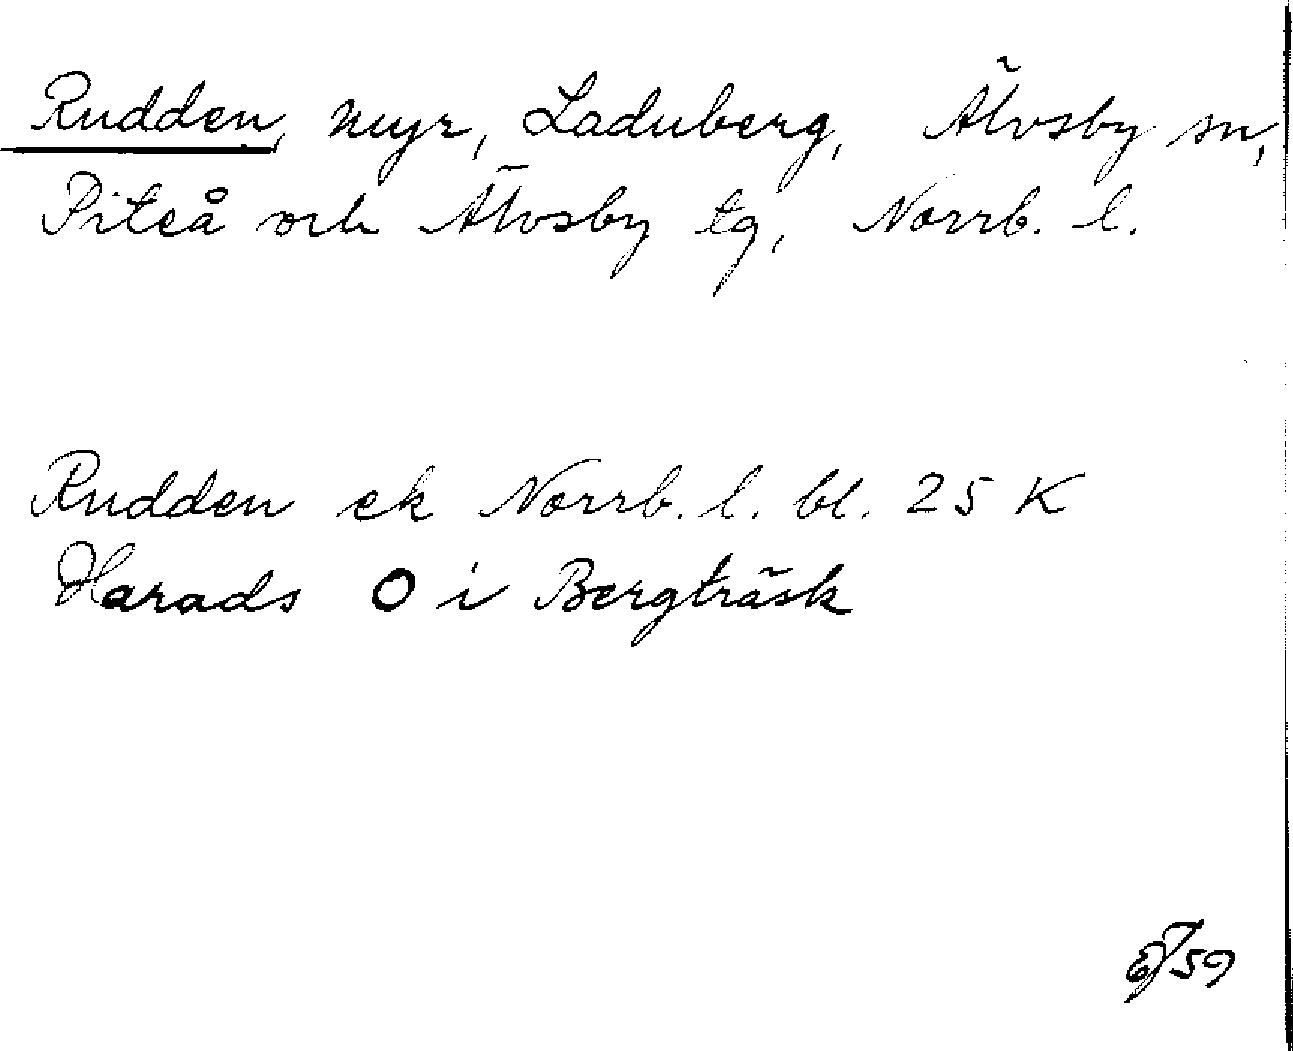 Rudden, myr, Laduberg, Älvsby sn,
Piteå och Älvsby tg, Norrb. l.
Rudden ek Norrb. l. bl. 25 K
Harads O i Bergträsk
59